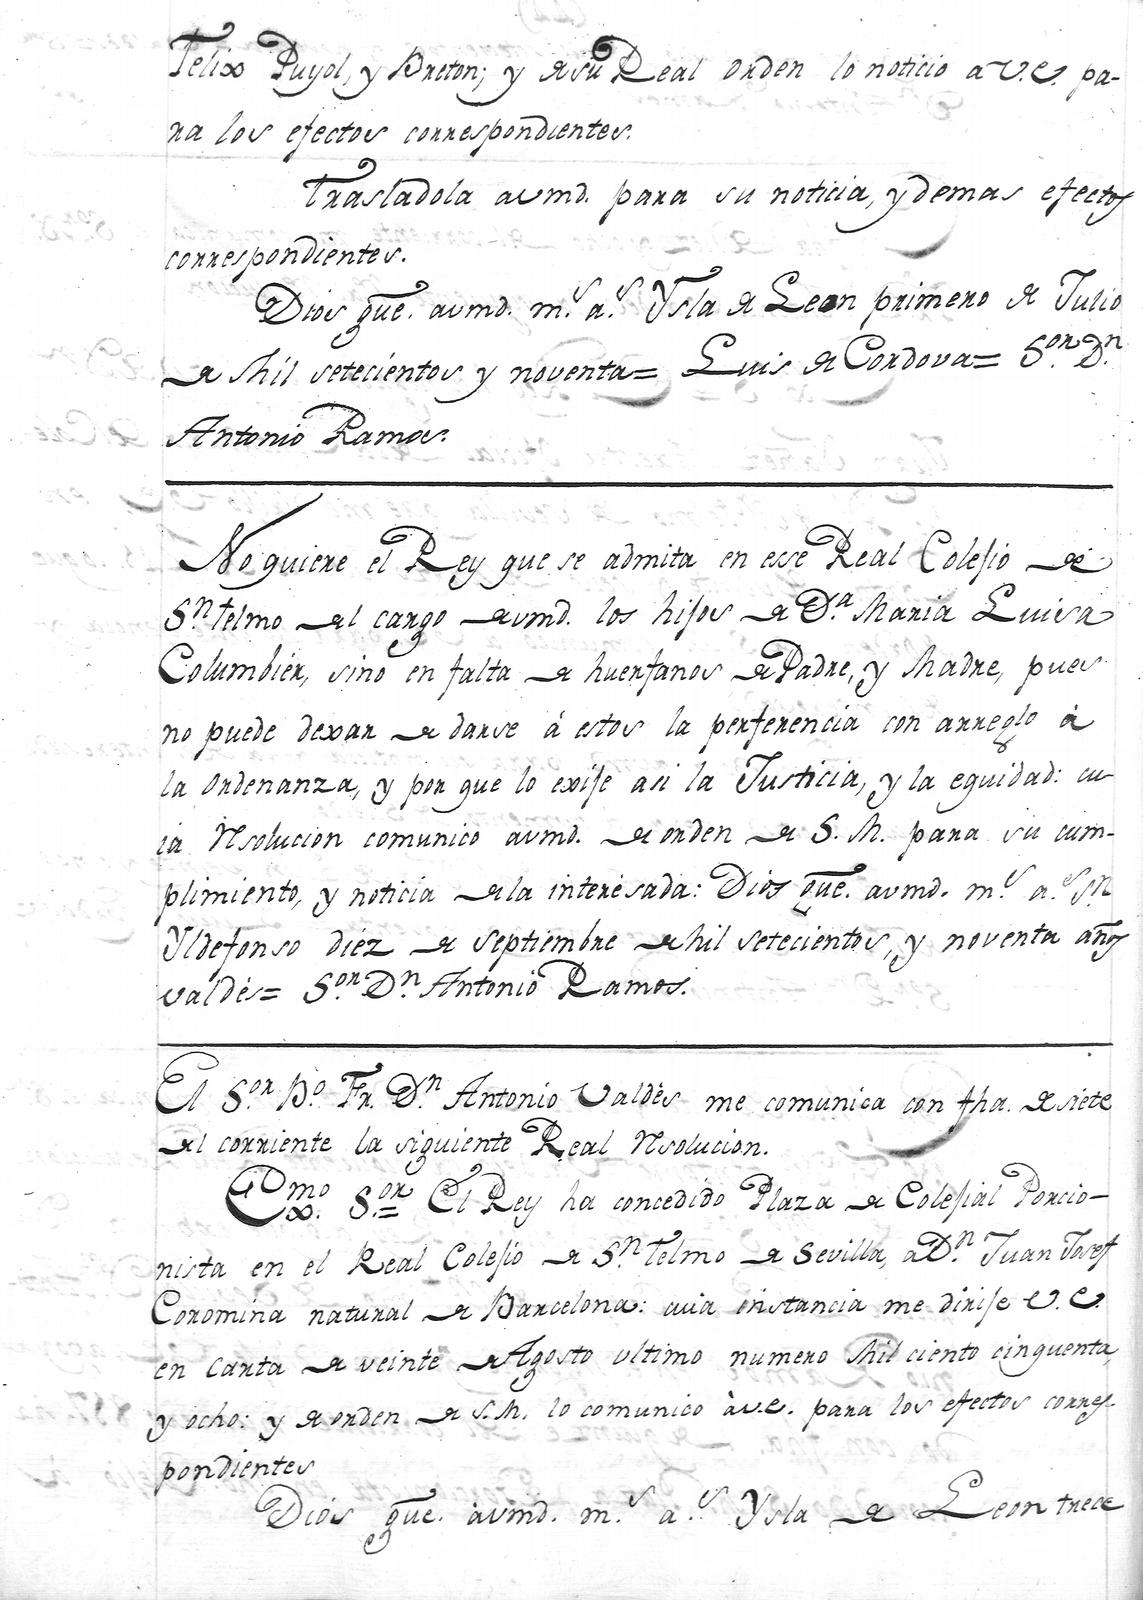 Felix Puyol, y Breton; y de su Real orden lo noticio a V.E. pa-
ra los efectos correspondientes.
Trasladola avmd. para su noticia, y demas efectos
correspondientes.
Dios gue. avmd. ms. as. Ysla de Leon primero de Julio
de Mil setecientos y noventa= Luis de Cordova= Sor. Dn.
Antonio Ramos.
No quiere el Rey que se admita en esse Real Colejio de
Sn. Telmo del cargo de vmd. los hijos de Da. Maria Luisa
Columbiér, sino en falta de huerfanos de Padre, y Madre, pues
no puede dexar de darse á estos la perferencia con arreglo á
la ordenanza, y por que lo exije asi la Justicia, y la equidad: cu-
ia Resolucion comunico avmd. de orden de S. M. para su cum-
plimiento, y noticia de la interesada: Dios gue. avmd. ms. as. Sn.
Yldefonso diéz de septiembre de Mil setecientos, y noventa años
Valdés= Sor. Dn. Antonio Ramos.
El Sor. Bo. Fr. Dn. Antonio Valdés me comunica con fha. de siete
del corriente la siguiente Real Resolucion.
Exmo. Sor.= El Rey ha concedido Plaza de Colejial Porcio-
nista en el Real Colejio de Sn. Telmo de Sevilla, a Dn. Juan Josef
Coromina natural de Barcelona: cuia instancia me dirije V.E.
en carta de veinte de Agosto ultimo numero Mil ciento cinquenta,
y ocho: y de orden de S.M. lo comunico à V.E. para los efectos corres-
pondientes
Dios gue. àvmd. ms. as. Ysla de Leon trece